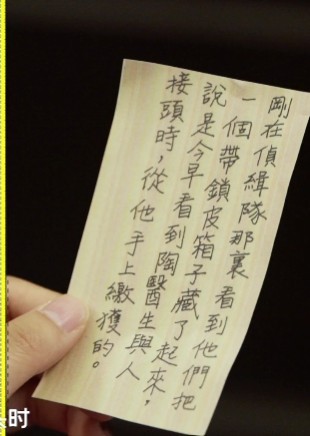 剛在偵緝隊那裏看到他們把
一個帶鎖皮箱子藏了起來，
說是今早看到陶醫生與人
接頭時，從他手上繳獲的。
时